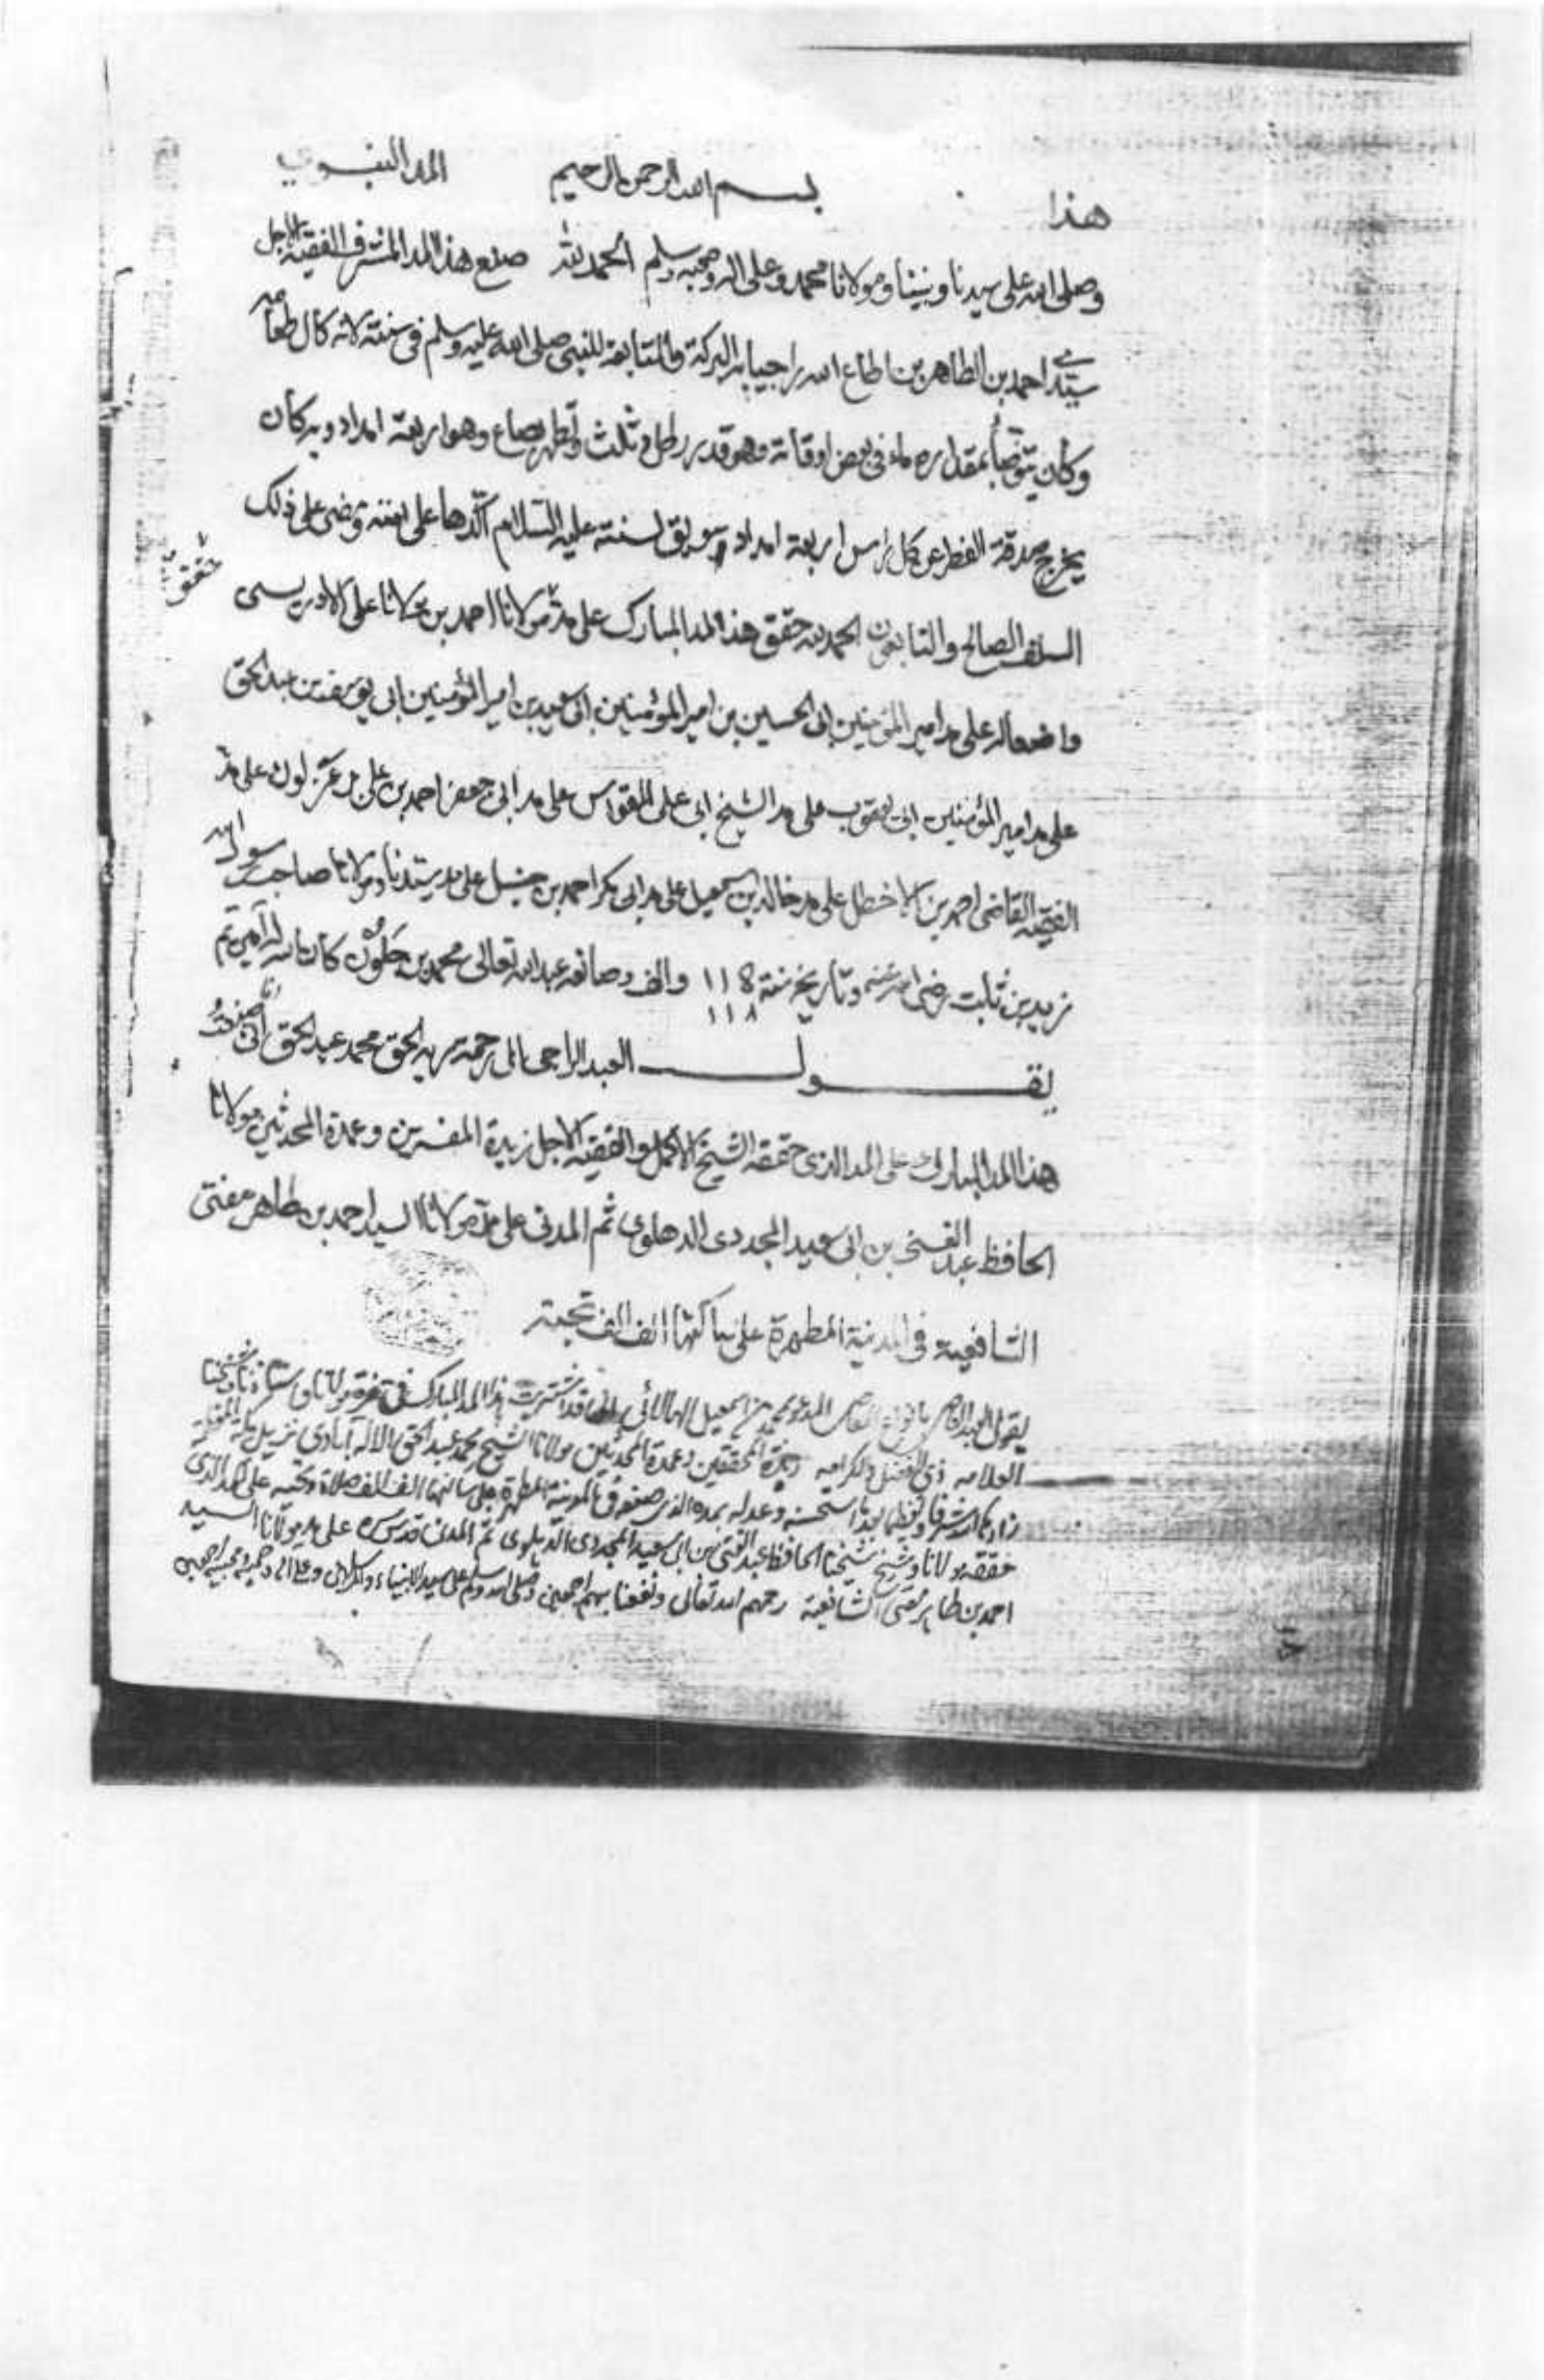 هذا بسم الله الرحمن الرحيم المد النبوي
وصلى الله على سيدنا ونبينا ومولانا محمد وعلى اله وصحبه وسلم الحمد لله صنع هذا المد المشرف الفقيه الاجل
سيدي احمد بن الطاهر بن اطاع الله راجيا به البركة والمتابعة للنبي صلى الله عليه وسلم في سنته لانه كال طعامه
وكان يتوضأ بمقداره ماء في بعض اوقاته وهو قدر رطل وثلث وتطهر بصاع وهو اربعة امداد وبه كان
يخرج صدقة الفطر عن كل راس اربعة امداد لسنته عليه السلام اكدها على امته ومضى على ذلك
السلف الصالح والتابعون الحمد لله حقق هذا المد المبارك على مد مولانا احمد بن علي الادريسي
على مد امير المؤمنين ابي الحسين بن امير المؤمنين ابي سعيد بن امير المؤمنين ابي يوسف بن عبد الحق
على مد امير المؤمنين ابي يعقوب على مد الشيخ ابي علي القواس على مد ابي جعفر احمد بن علي بن غزلون على مد
الفقيه القاضي احمد بن الاخطل على مد خالد بن اسمعيل على مد ابي بكر احمد بن حنبل على مد سيدنا ومولانا صاحب رسول الله
زيد بن ثابت رضي الله عنه وتاريخ سنة ١١٨ والف وصانعه عبد الله تعالى محمد بن جلون كان الله له آمين تم
١١٨
يقول العبد الراجي الى رحمة ربه الحق محمد عبد الحق اني صنعت
هذا المد المبارك على المد الذي حققه الشيخ الاكمل والفقيه الاجل زبدة المفسرين وعمدة المحدثين مولانا
الحافظ عبد الغني بن ابي سعيد المجددي الدهلوي ثم المدني على مد مولانا السيد احمد بن طاهر مفتي
الشافعية في المدينة المطهرة على ساكنها الف الف تحية
يقول العبد المدعو محمد بن اسمعيل قد اشتريت هذا المد المبارك في مولانا واستاذنا وشيخنا
العلامه ذي الفضل والكرامه زبدة المحققين وعمدة المحدثين مولانا الشيخ محمد عبد الحق الاله آبادي نزيل مكة المعظمة
زادها الله شرفا وتعظيما وعدله بمده الذي صنعه في المدينة المطهرة على ساكنها الف الف صلاة وتحية على المد الذي
حققه مولانا وشيخ شيخنا الحافظ عبد الغني بن ابي سعيد المجددي الدهلوي ثم المدني قدس سره على مد مولانا السيد
احمد بن طاهر مفتي الشافعية رحمهم الله تعالى ونفعنا بهم اجمعين وصلى الله وسلم على سيد الانبياء والمرسلين وعلى اله وصحبه اجمعين